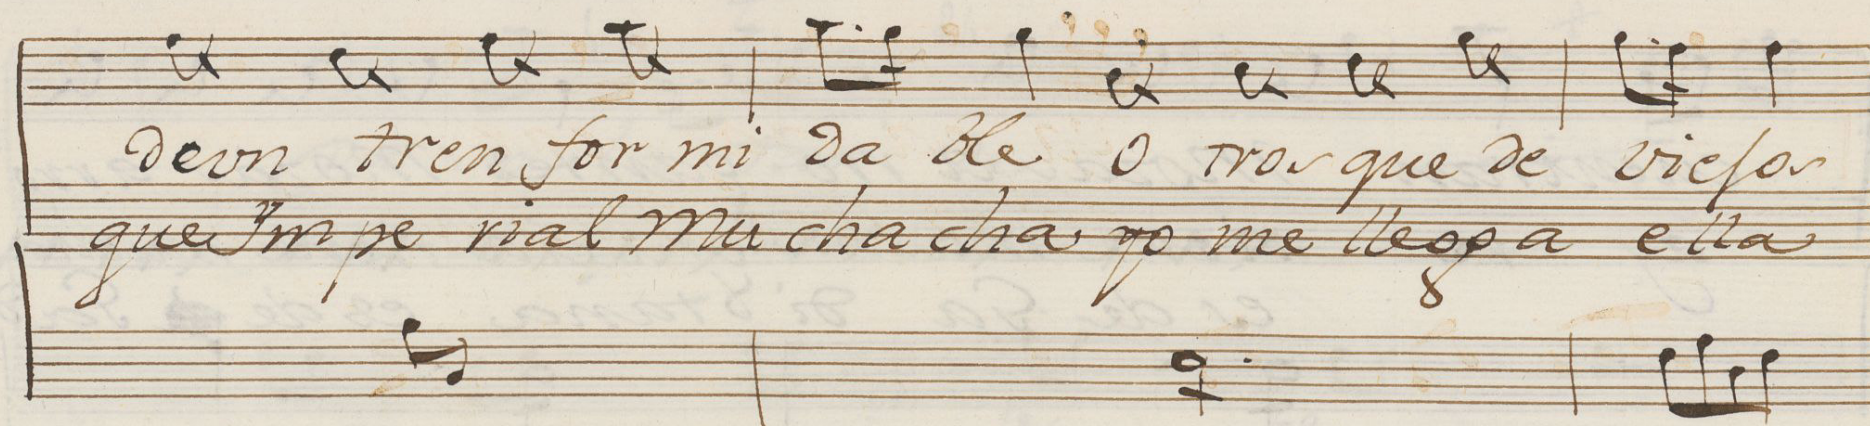 devn tren for mi da ble O tros que de viesos
que Ymperial Mu cha cha yo me llego a ella